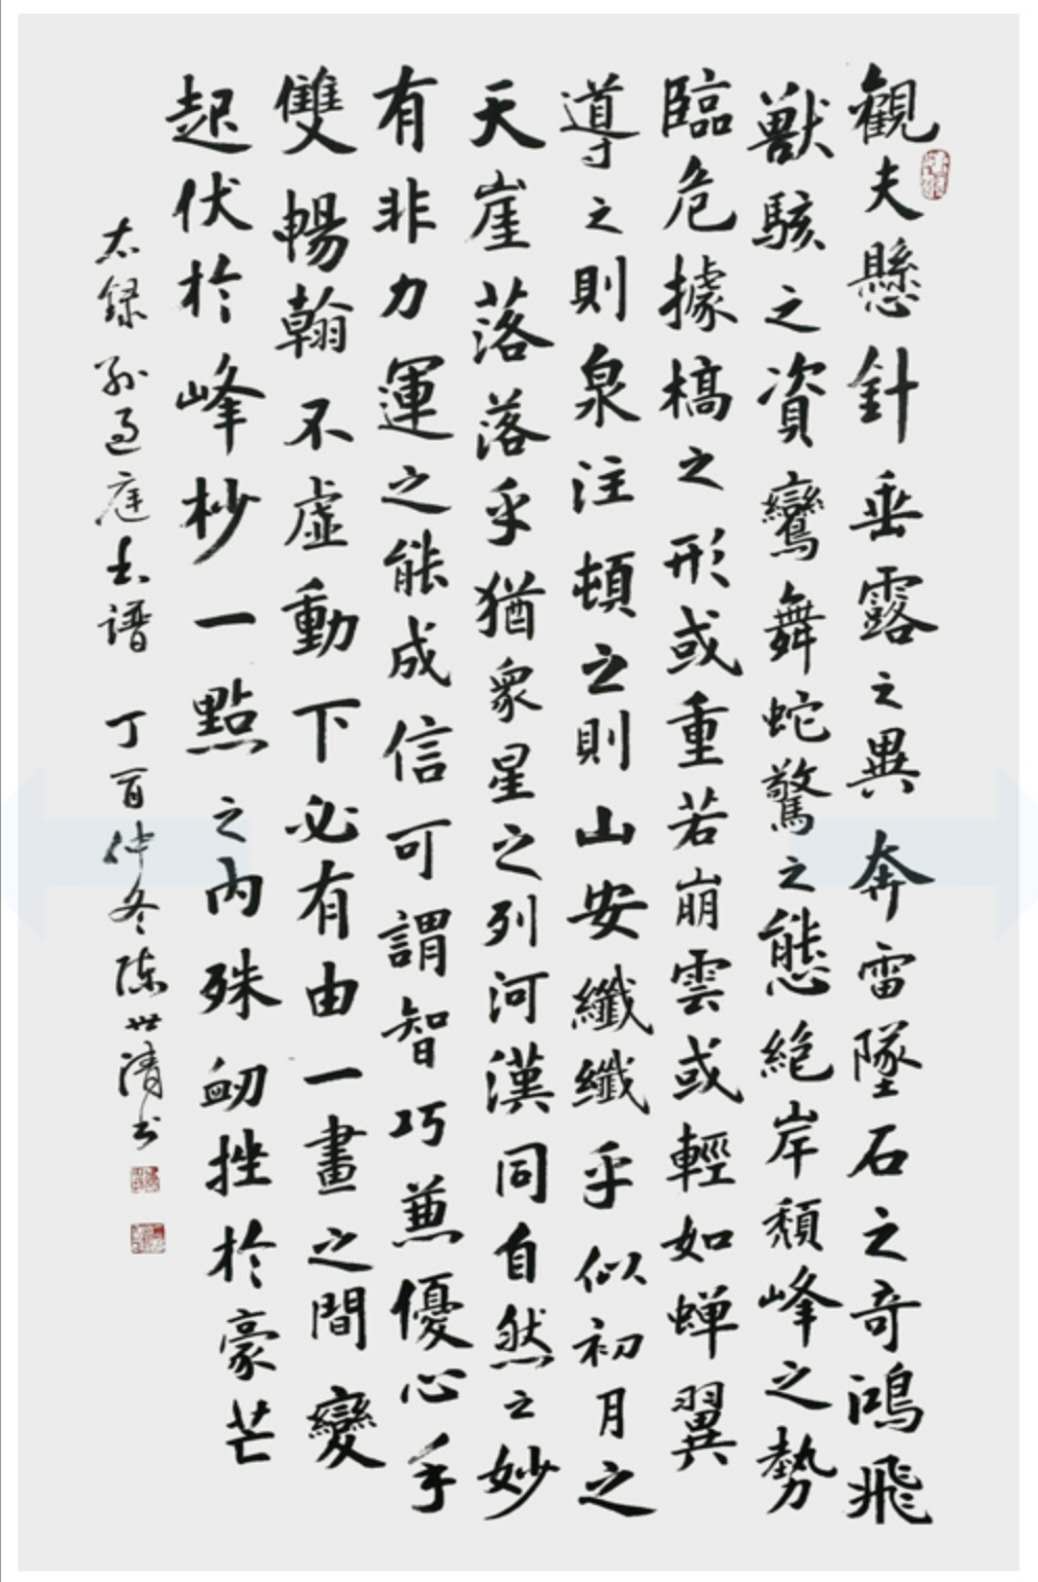 觀夫懸針垂露之異奔雷墜石之奇鴻飛
獸駭之資鸞舞蛇驚之態絕岸頹峰之勢
臨危據槁之形或重若崩雲或輕如蟬翼
導之則泉注頓之則山安纖纖乎似初月之
天崖落落乎猶眾星之列河漢同自然之妙
有非力運之能成信可謂智巧兼優心手
雙暢翰不虛動下必有由一畫之間變
起伏於峰杪一點之內殊衂挫於豪芒
右録孙过庭书谱 丁酉仲冬陈世清书